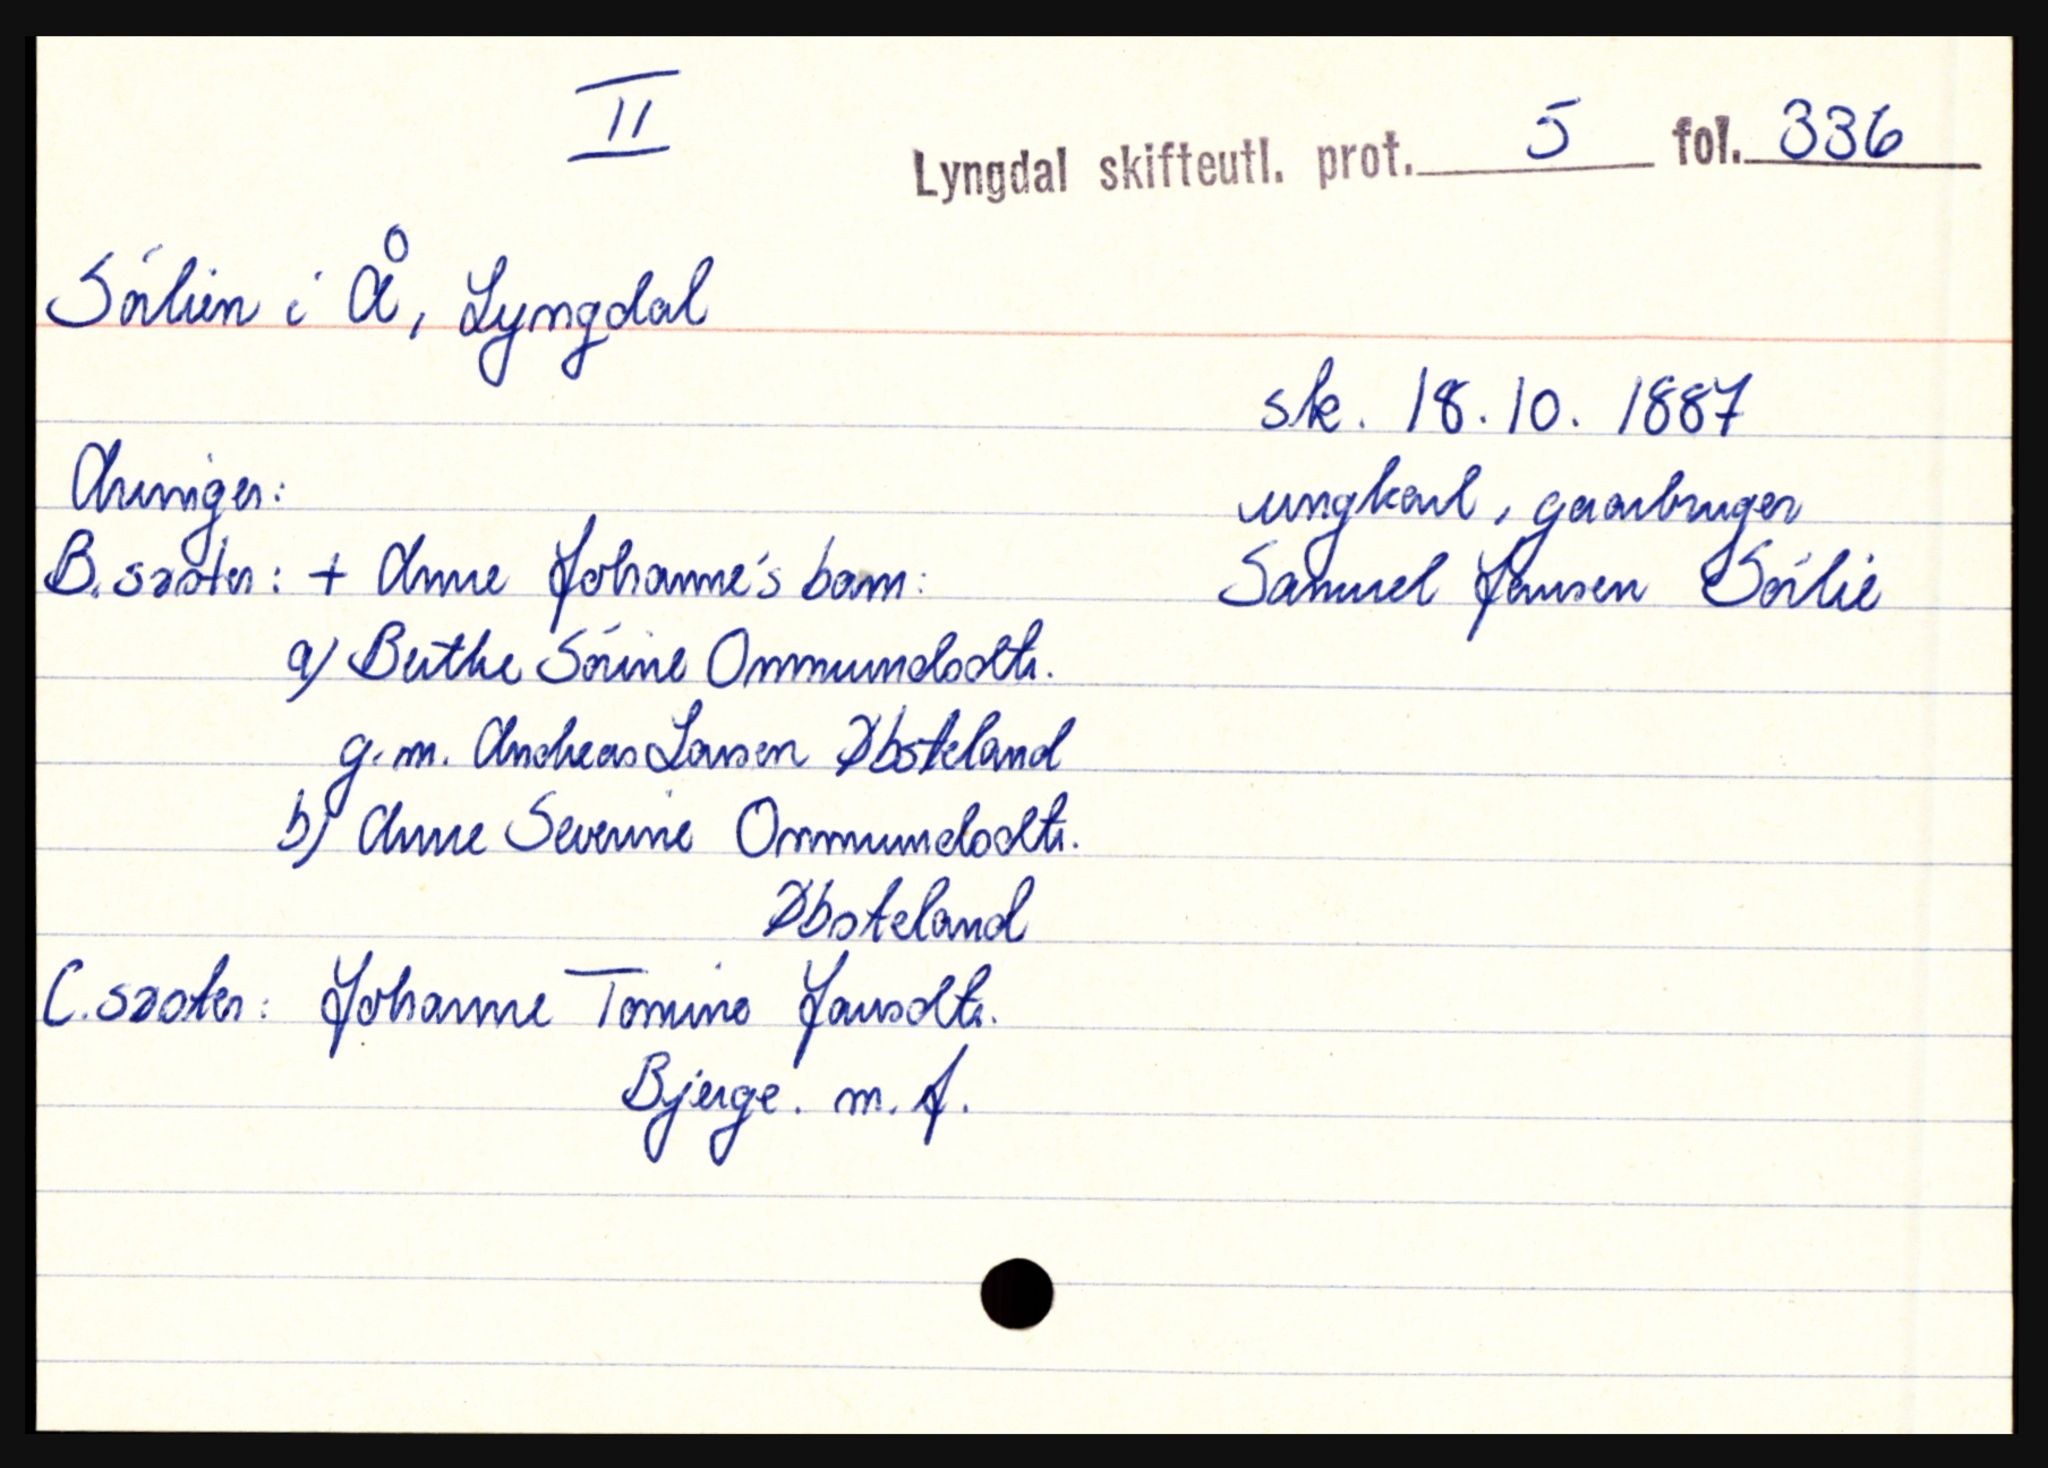 II
Lyngdal skifteutl. prot. 5 fol. 336
Sörlien i Å, Lyngdal
sk. 18.10. 1887
Arvinger:
ungkarl, gaarbruger
Samuel Jansen Sörlie
B. søster: + Anne Johanne's barn:
a) Berthe Sörine Ommundsdtr.
g. m. Andreas Larsen Øbsteland
b) Anne Severine Ommundsdtr.
Øbsteland
C. søster: Johanne Tomine Jansdtr.
Bjerge. m. f.